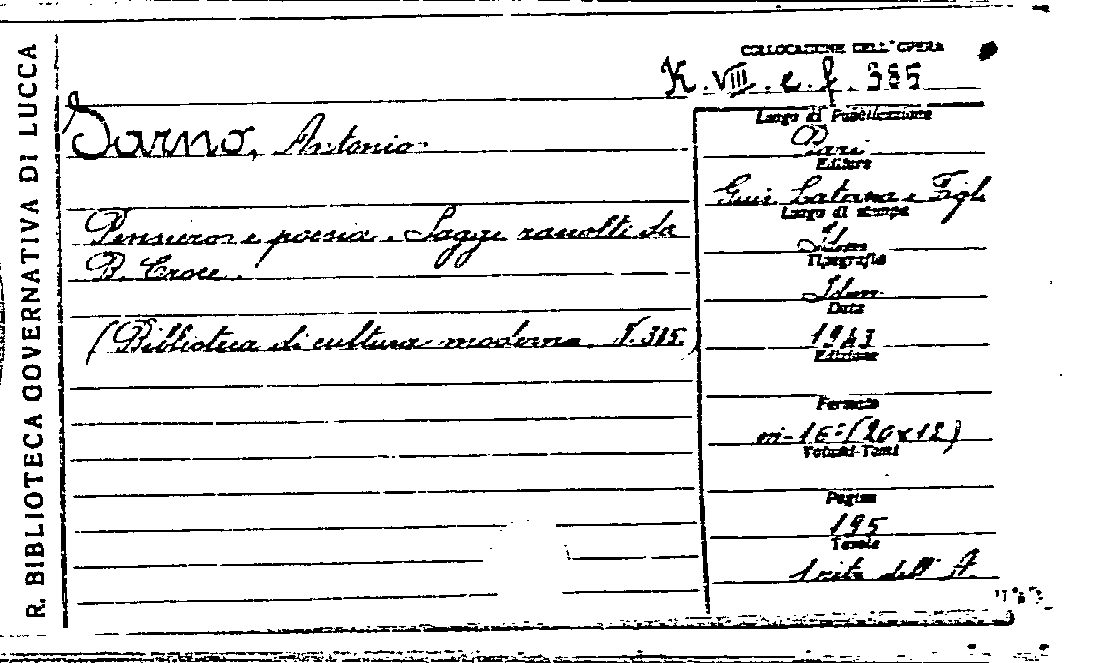 R. BIBLIOTECA GOVERNATIVA DI LUCCA
COLLOCAZIONE DELL'OPERA
K. VIII. e. f. 385
Sarno, Antonio
Pensiero e poesia. Saggi raccolti da
B. Croce.
(Biblioteca di cultura moderna. N. 385.)
Luogo di Pubblicazione
Bari
Editore
Gius. Laterza e Figli
Luogo di stampa
Idem
Tipografia
Idem
Data
1943
Edizione
Formato
in-16° (20x12)
Volumi-Tomi
Pagine
195
Tavole
1 ritr. dell' A.